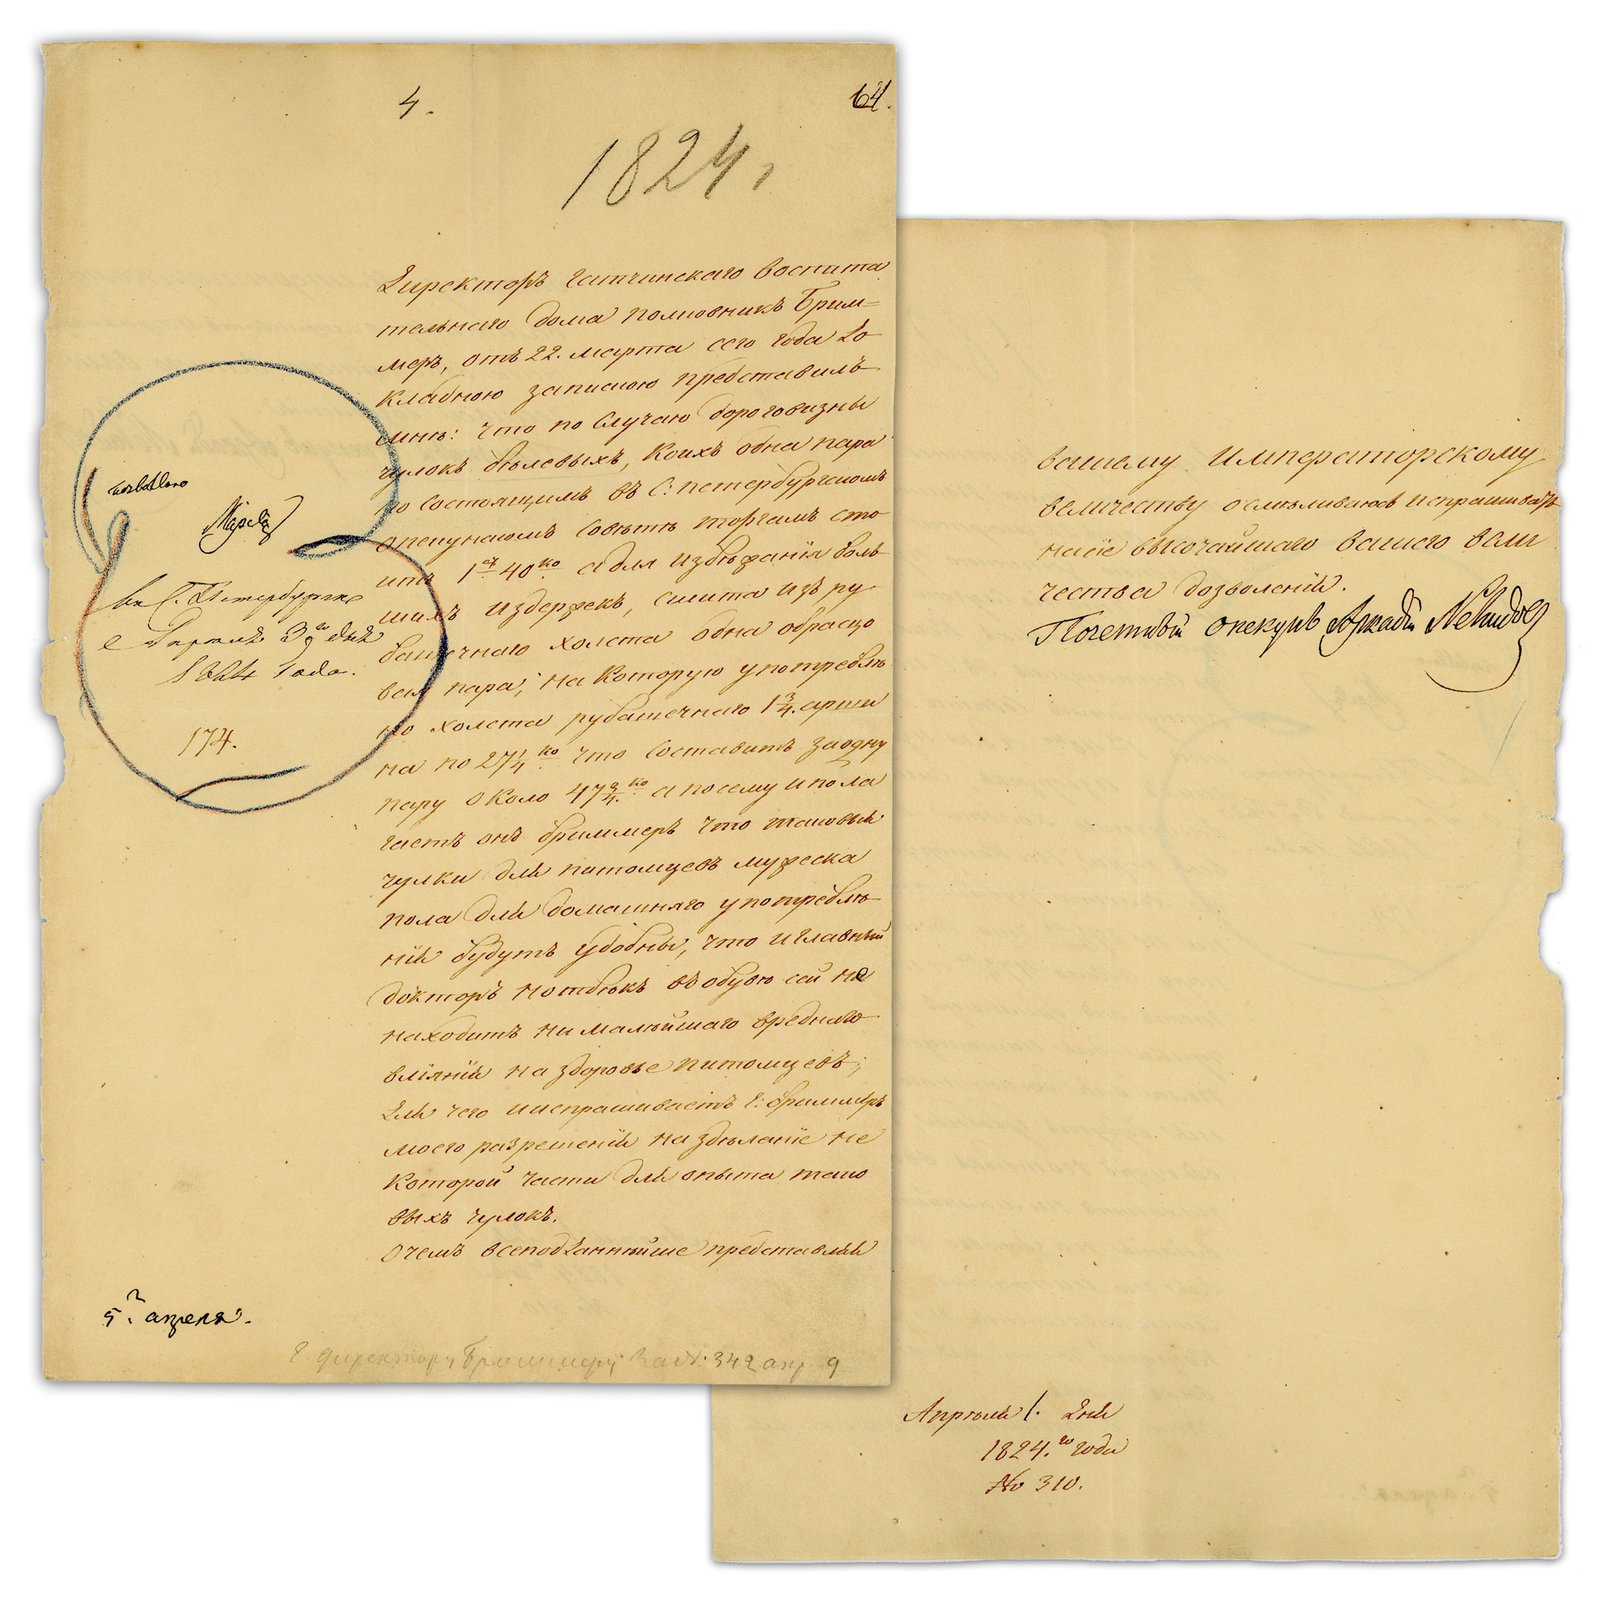 4.
64.
1824.
Директоръ Гатчинскаго воспита
тельнаго дома полковникъ Брим-
меръ, отъ 22. марта сего года до
кладною запискою представилъ
мнѣ: что по случаю дороговизны
чулокъ бѣлевыхъ, коихъ одна пара
по состоящимъ въ С: петербургскомъ
опекунскомъ совѣтѣ торгамъ сто
итъ 1 40 ко а для избѣжанія боль
шихъ издержекъ, сшита изъ ру
башечнаго холста одна образцо
вая пара; на которую употребле
но холста рубашечнаго 1 3/4. арши
на по 27 1/4 ко что составитъ заодну
пару около 47 3/4. ко а посему и пола
гаетъ онъ бриммеръ что таковыя
чулки для питомцевъ мужеска
пола для домашняго употребле-
нія будутъ удобны, что и главный
докторъ въ обувѣ сей не
находитъ ни малѣйшаго вреднаго
вліянія на здоровье питомцевъ;
Для чего испрашиваетъ Г: бриммеръ
моего разрешенія на здѣланіе не
которой части для опыта тако
выхъ чулокъ.
О чемъ всеподданнѣйше представляя
позволяю
Марія
въ С. Петербургѣ
Апрѣля 3го дня
1824 года.
174.
5. апреля.
Г директору Бриммеру за №. 342 апр 9
вашему Императорскому
величеству осмѣливаюсь испрашивать
на сіе высочайшаго вашего вели
чества дозволенія.
Почетный опекунъ Аркадій Нелидовъ
Апрѣля 1. дня
1824.го года
No 310.